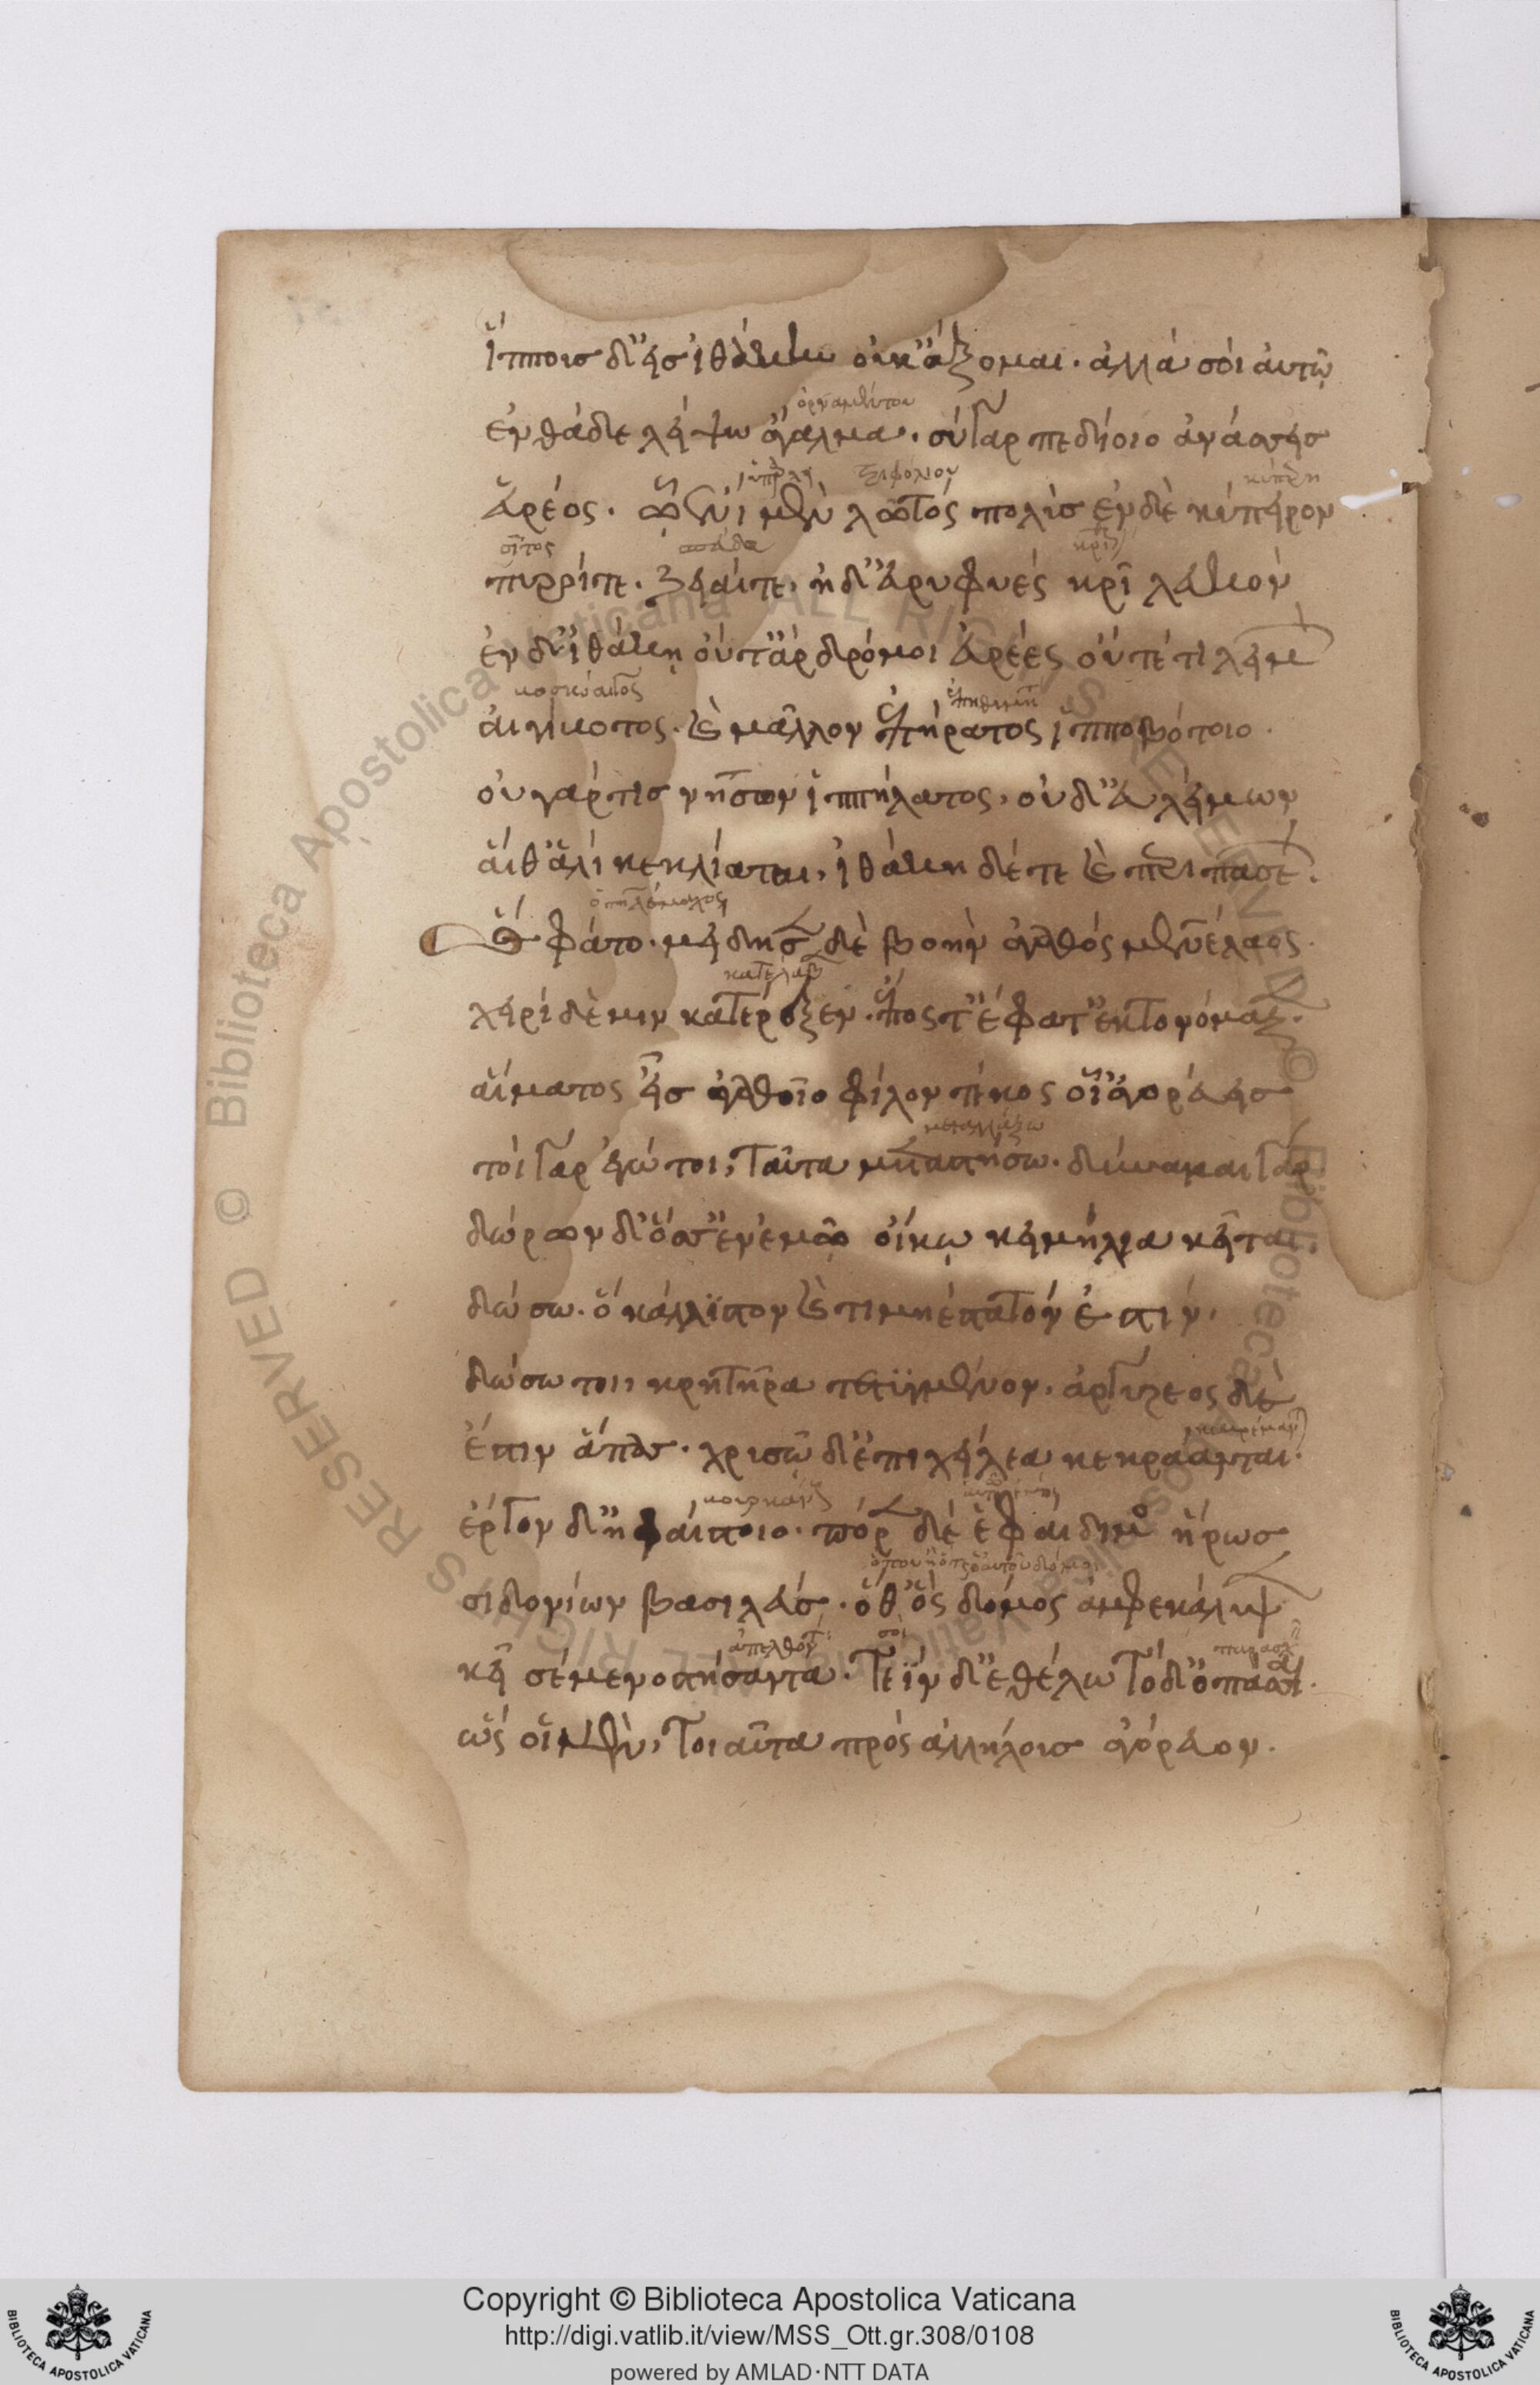 ἵπποισ δ' εἰσ ἰθάκην οὐκ ἄξομαι. ἀλλά σὸι ἀυτῶ
ἐνθάδε λείψω ἄγαλμα. σύ γαρ πεδίοιο ἀνάσσεισ
ἐυρέος. ὧ ἔνι μὲν λωτός πολὺσ ἐν δὲ κύπειρον
σῖτος
πυροί τε. ζειαί τε, ἠδ' ἐυρυφυές κρῖ λευκὸν
ἐν δ' ἰθάκη οὐτ' ἂρ δρόμοι ἐυρέες οὔτέ τι λειμ
ἀιγίβοτος. καὶ μᾶλλον ἐπήρατος ἱπποβότοιο.
οὐ γάρ τισ νήσων ἱππήλατος, οὐδ' ἐυλείμων
ἅιθ' ἁλὶ κεκλίαται, ἰθάκη δέ τε καὶ περὶ πασέ.
ὁ τηλέμαχος
Ὣσ φάτο. μείδησ δὲ βοὴν ἀγαθός μενέλαος.
χειρί δὲ μιν κατέρεξεν. ἔπος τ' ἔφατ' ἔκ τ' ονόμαζ.
ἅιματος εἶσ ἀγαθοῖο φίλον τέκος οἷ' ἀγορέυεισ
τοί γαρ ἐγώ τοι, ταῦτα μεταστήσω. δύναμαι γαρ
δώρων δ' ὅσσ' ἐν ἐμῶ οἴκω κειμήλια κεῖται,
δώσω. ὃ κάλλιστον καὶ τιμηέστατόν ἐστιν.
δώσω τοι, κρητῆρα τετυγμένον. ἀργύρεος δὲ
ἔστιν ἅπασ. χρυσῶ δ' ἐπι χείλεα κεκράανται.
ἔργον δ' ἡφαίστοιο. πόρ δέ ἑ φαίδιμος ἥρωσ
σιδονίων βασιλεύσ. ὅθ' ἑὸς δόμος ἀμφεκάλυψ
ἀπελθόντ σοὶ
κεῖ σέ με νοστήσαντα. τεῒν δ' ἐθέλω τόδ' ὀπάσσαι.
ὣς οἱ μὲν, τοιαῦτα πρὸς ἀλλήλουσ ἀγόρευον.
Copyright © Biblioteca Apostolica Vaticana
http://digi.vatlib.it/view/MSS_Ott.gr.308/0108
powered by AMLAD·NTT DATA
BIBLIOTECA APOSTOLICA VATICANA
BIBLIOTECA APOSTOLICA VATICANA
© Biblioteca Apostolica Vaticana ALL RIGHTS RESERVED